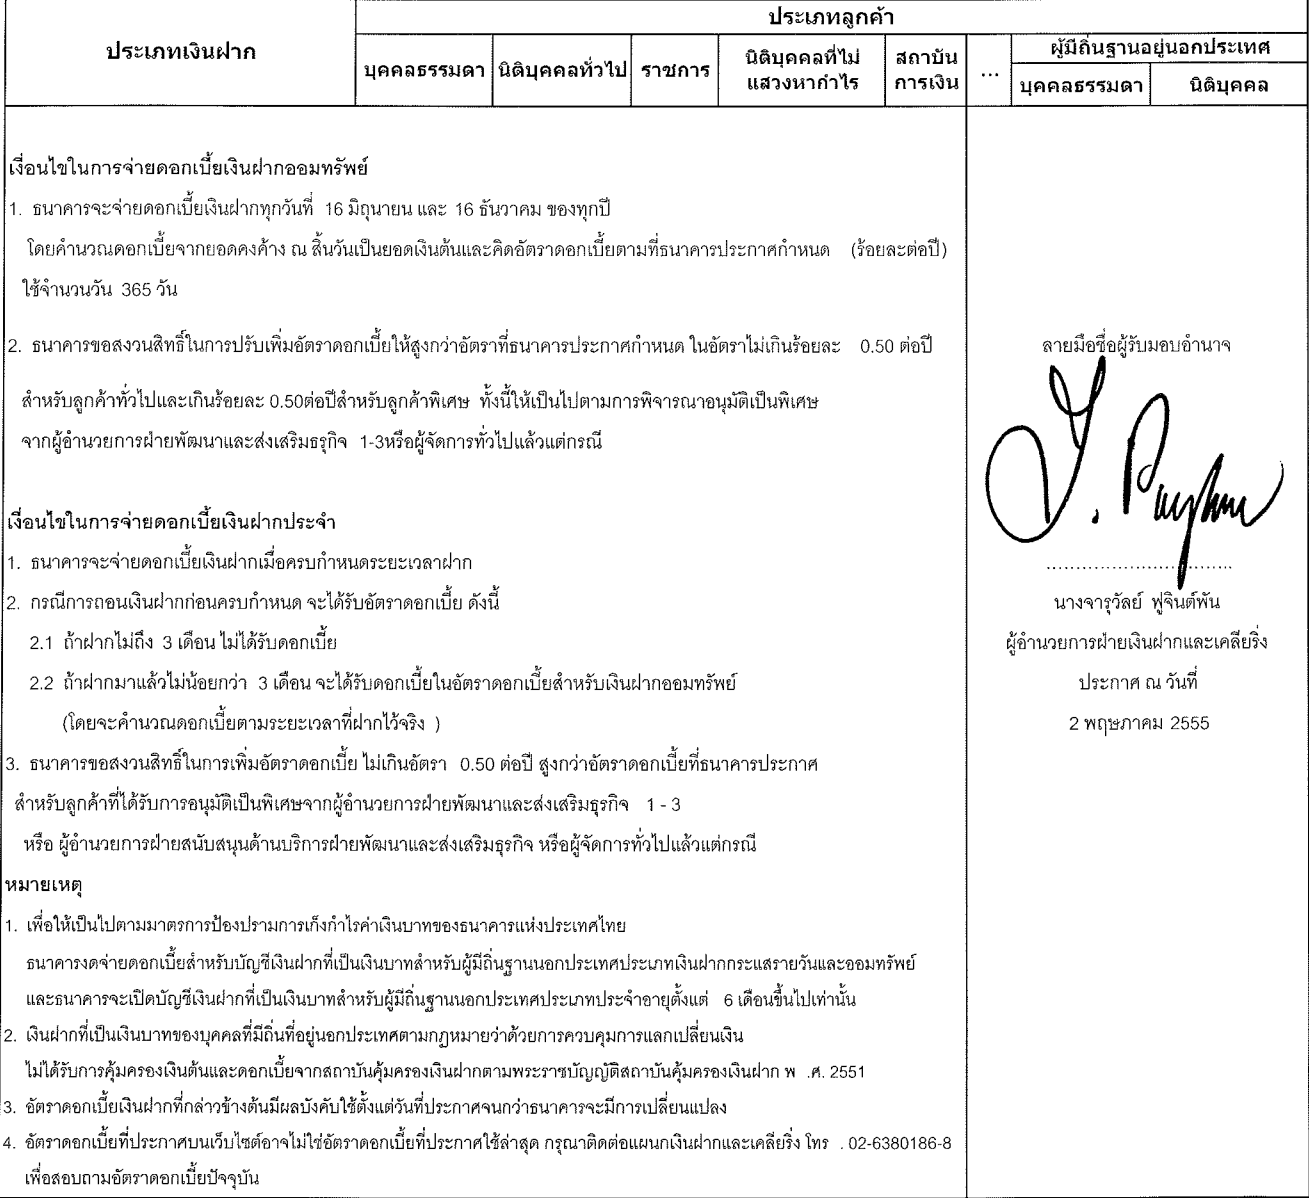 ประเภทเงินฝาก
ประเภทลูกค้า
บุคคลธรรมดา
นิติบุคคลทั่วไป
ราชการ
นิติบุคคลที่ไม่
แสวงหากำไร
สถาบัน
การเงิน
...
ผู้มีถิ่นฐานอยู่นอกประเทศ
บุคคลธรรมดา
นิติบุคคล
เงื่อนไขในการจ่ายดอกเบี้ยเงินฝากออมทรัพย์
1. ธนาคารจะจ่ายดอกเบี้ยเงินฝากทุกวันที่ 16 มิถุนายน และ 16 ธันวาคม ของทุกปี
โดยคำนวณดอกเบี้ยจากยอดคงค้าง ณ สิ้นวันเป็นยอดเงินต้นและคิดอัตราดอกเบี้ยตามที่ธนาคารประกาศกำหนด (ร้อยละต่อปี)
ใช้จำนวนวัน 365 วัน
2. ธนาคารขอสงวนสิทธิ์ในการปรับเพิ่มอัตราดอกเบี้ยให้สูงกว่าอัตราที่ธนาคารประกาศกำหนด ในอัตราไม่เกินร้อยละ 0.50 ต่อปี
สำหรับลูกค้าทั่วไปและเกินร้อยละ 0.50ต่อปีสำหรับลูกค้าพิเศษ ทั้งนี้ให้เป็นไปตามการพิจารณาอนุมัติเป็นพิเศษ
จากผู้อำนวยการฝ่ายพัฒนาและส่งเสริมธุรกิจ 1-3หรือผู้จัดการทั่วไปแล้วแต่กรณี
เงื่อนไขในการจ่ายดอกเบี้ยเงินฝากประจำ
1. ธนาคารจะจ่ายดอกเบี้ยเงินฝากเมื่อครบกำหนดระยะเวลาฝาก
2. กรณีการถอนเงินฝากก่อนครบกำหนด จะได้รับอัตราดอกเบี้ย ดังนี้
2.1 ถ้าฝากไม่ถึง 3 เดือน ไม่ได้รับดอกเบี้ย
2.2 ถ้าฝากมาแล้วไม่น้อยกว่า 3 เดือน จะได้รับดอกเบี้ยในอัตราดอกเบี้ยสำหรับเงินฝากออมทรัพย์
(โดยจะคำนวณดอกเบี้ยตามระยะเวลาที่ฝากไว้จริง )
3. ธนาคารขอสงวนสิทธิ์ในการเพิ่มอัตราดอกเบี้ย ไม่เกินอัตรา 0.50 ต่อปี สูงกว่าอัตราดอกเบี้ยที่ธนาคารประกาศ
สำหรับลูกค้าที่ได้รับการอนุมัติเป็นพิเศษจากผู้อำนวยการฝ่ายพัฒนาและส่งเสริมธุรกิจ 1 - 3
หรือ ผู้อำนวยการฝ่ายสนับสนุนด้านบริการฝ่ายพัฒนาและส่งเสริมธุรกิจ หรือผู้จัดการทั่วไปแล้วแต่กรณี
หมายเหตุ
1. เพื่อให้เป็นไปตามมาตรการป้องปรามการเก็งกำไรค่าเงินบาทของธนาคารแห่งประเทศไทย
ธนาคารงดจ่ายดอกเบี้ยสำหรับบัญชีเงินฝากที่เป็นเงินบาทสำหรับผู้มีถิ่นฐานนอกประเทศประเภทเงินฝากกระแสรายวันและออมทรัพย์
และธนาคารจะเปิดบัญชีเงินฝากที่เป็นเงินบาทสำหรับผู้มีถิ่นฐานนอกประเทศประเภทประจำอายุตั้งแต่ 6 เดือนขึ้นไปเท่านั้น
2. เงินฝากที่เป็นเงินบาทของบุคคลที่มีถิ่นที่อยู่นอกประเทศตามกฎหมายว่าด้วยการควบคุมการแลกเปลี่ยนเงิน
ไม่ได้รับการคุ้มครองเงินต้นและดอกเบี้ยจากสถาบันคุ้มครองเงินฝากตามพระราชบัญญัติสถาบันคุ้มครองเงินฝาก พ .ศ. 2551
3. อัตราดอกเบี้ยเงินฝากที่กล่าวข้างต้นมีผลบังคับใช้ตั้งแต่วันที่ประกาศจนกว่าธนาคารจะมีการเปลี่ยนแปลง
4. อัตราดอกเบี้ยที่ประกาศบนเว็บไซต์อาจไม่ใช่อัตราดอกเบี้ยที่ประกาศใช้ล่าสุด กรุณาติดต่อแผนกเงินฝากและเคลียริ่ง โทร . 02-6380186-8
เพื่อสอบถามอัตราดอกเบี้ยปัจจุบัน
ลายมือชื่อผู้รับมอบอำนาจ
..............................
นางจารุวัลย์ ฟูจินต์พัน
ผู้อำนวยการฝ่ายเงินฝากและเคลียริ่ง
ประกาศ ณ วันที่
2 พฤษภาคม 2555